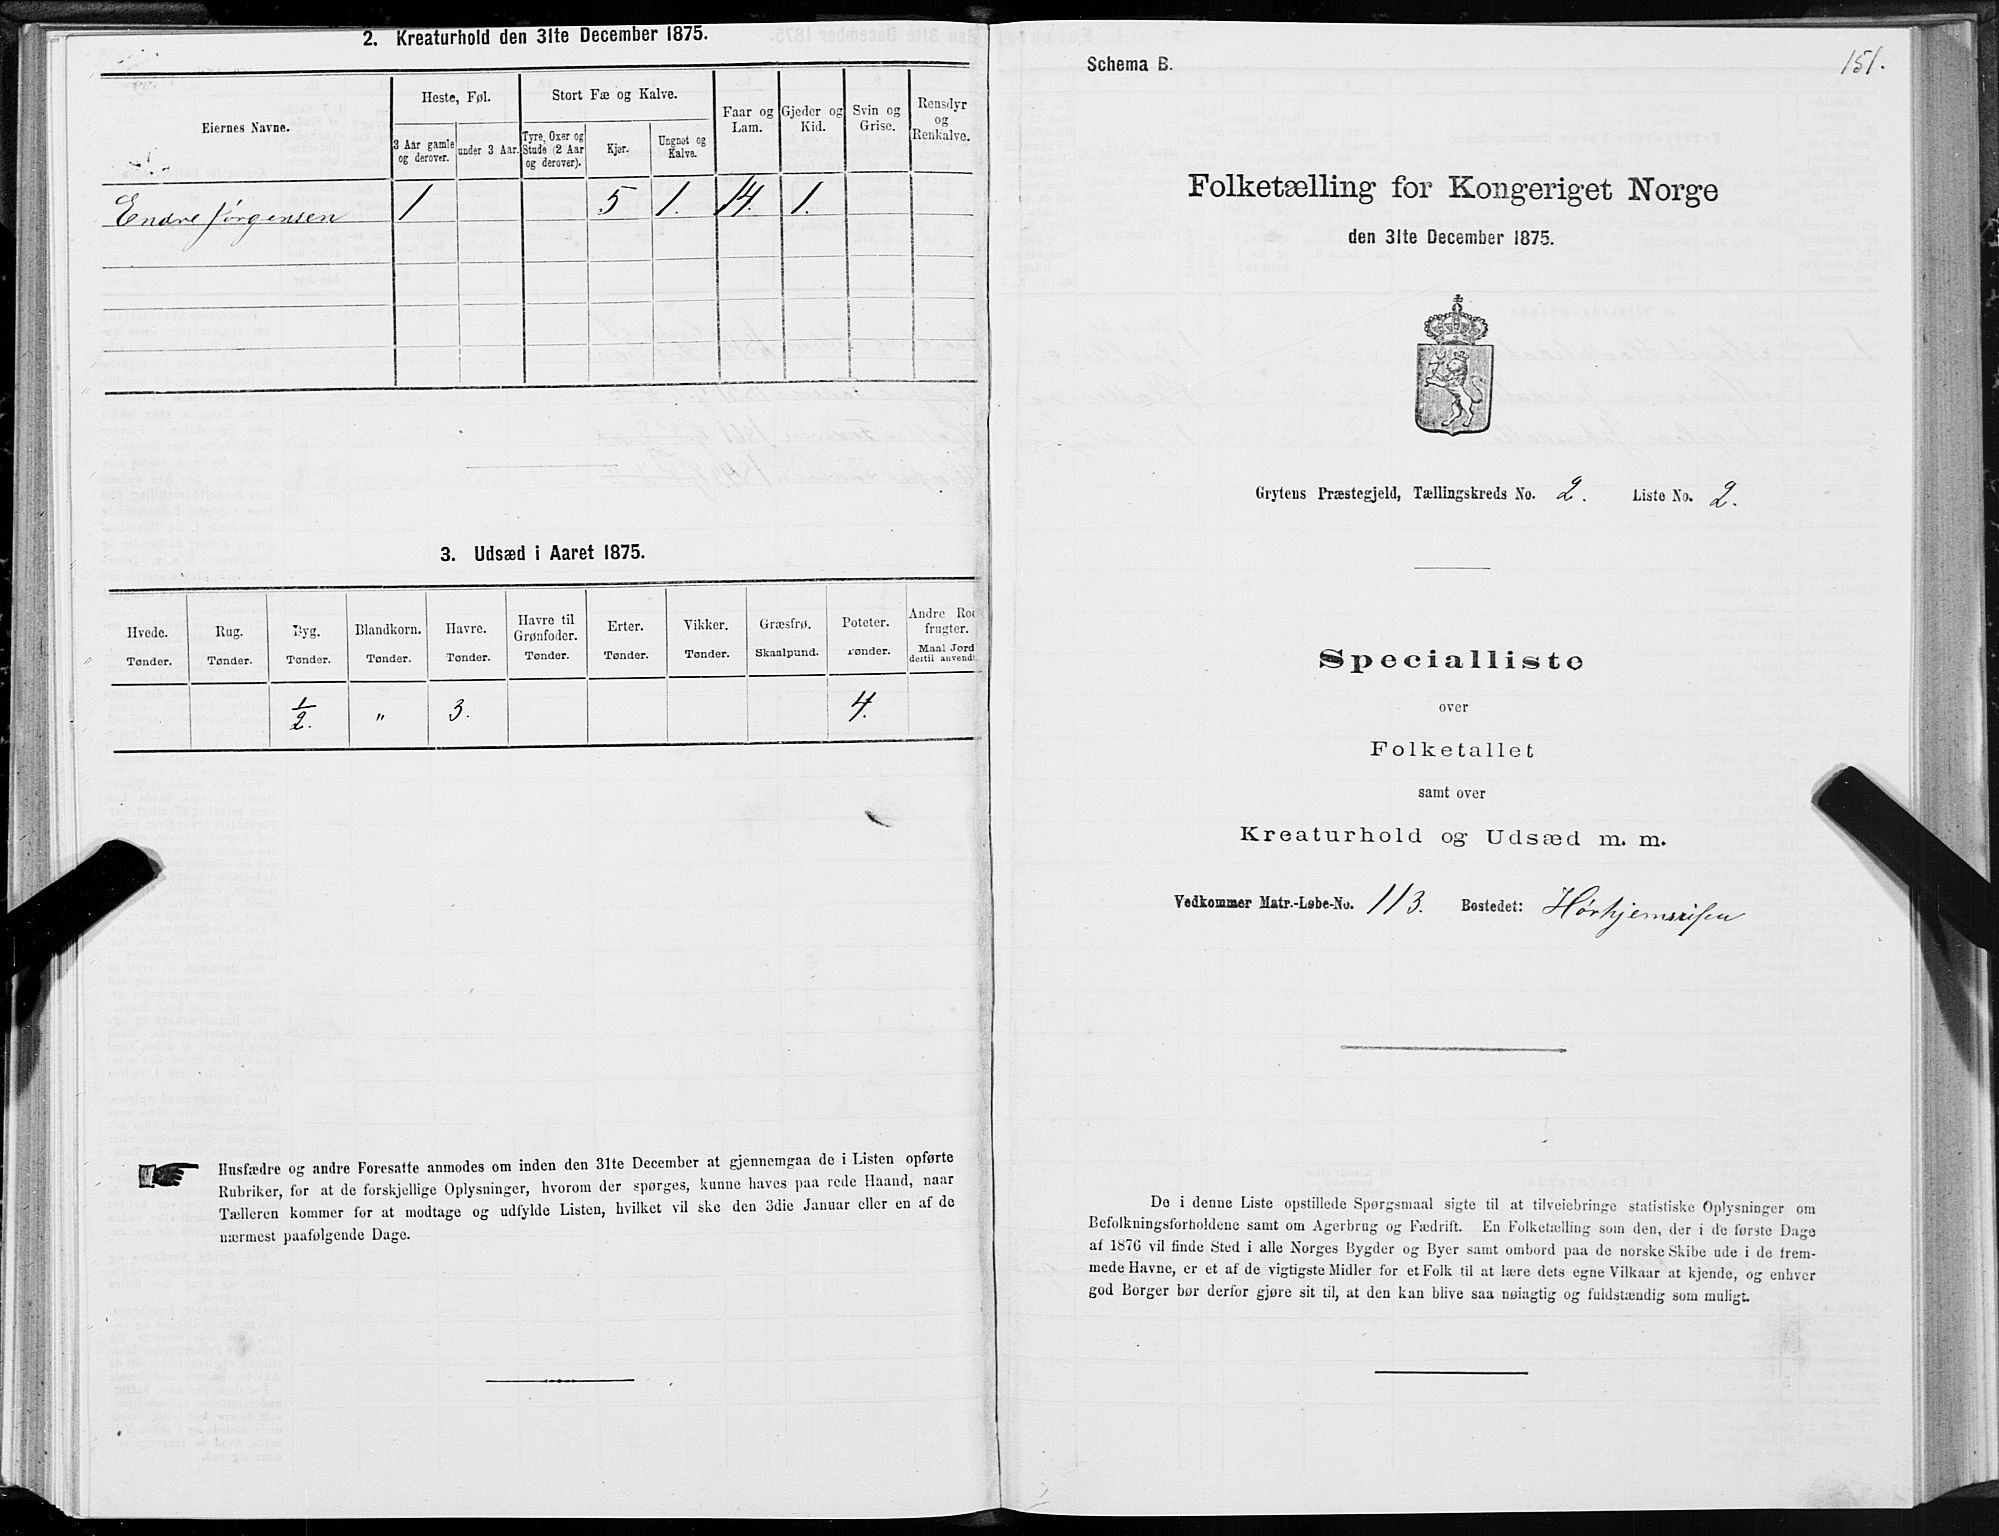 2. Kreaturhold den 31te December 1875.
Eiernes Navne.
Heste, Føl.
Stort Fæ og Kalve.
Faar og Lam.
Gjeder og Kid.
Svin og Grise.
Rensdyr og Renkalve.
3 Aar gamle og derover.
under 3 Aar.
Tyre, Oxer og Stude (2 Aar og derover).
Kjør.
Ungnøt og Kalve.
Endre Jørgensen 1 5 1. 14. 1.
3. Udsæd i Aaret 1875.
Hvede. Rug. Byg. Blandkorn. Havre. Havre til Grønfoder. Erter. Vikker. Græsfrø. Poteter. Andre Rod frugter.
Tønder. Tønder. Tønder. Tønder. Tønder. Tønder. Tønder. Tønder. Skaalpund. Tønder. Maal Jord dertil anvendt.
1/2. " 3. 4.
Husfædre og andre Foresatte anmodes om inden den 31te December at gjennemgaa de i Listen opførte
Rubriker, for at de forskjellige Oplysninger, hvorom der spørges, kunne haves paa rede Haand, naar
Tælleren kommer for at modtage og udfylde Listen, hvilket vil ske den 3die Januar eller en af de
nærmest paafølgende Dage.
Schema B.
151.
Folketælling for Kongeriget Norge
den 31te December 1875.
Grytens Præstegjeld, Tællingskreds No. 2. Liste No. 2.
Specialliste
over
Folketallet
samt over
Kreaturhold og Udsæd m. m.
Vedkommer Matr.-Løbe-No. 113. Bostedet: Hørhjemsrisen
De i denne Liste opstillede Spørgsmaal sigte til at tilveiebringe statistiske Oplysninger om
Befolkningsforholdene samt om Agerbrug og Fædrift. En Folketælling som den, der i de første Dage
af 1876 vil finde Sted i alle Norges Bygder og Byer samt ombord paa de norske Skibe ude i de frem-
mede Havne, er et af de vigtigste Midler for et Folk til at lære dets egne Vilkaar at kjende, og enhver
god Borger bør derfor gjøre sit til, at den kan blive saa nøiagtig og fuldstændig som muligt.